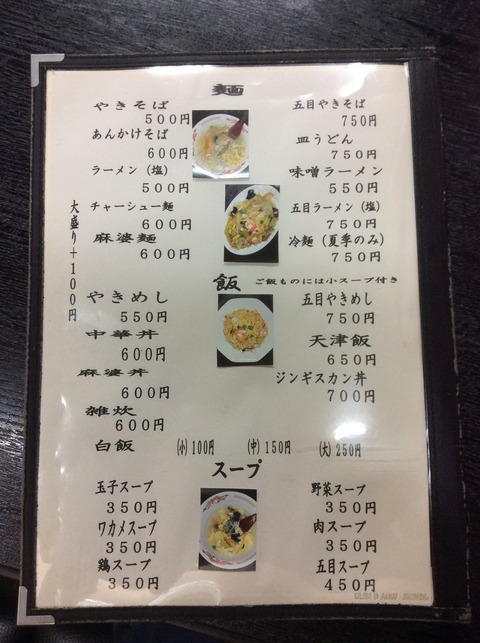 麺
やきそば
500円
五目やきそば
750円
あんかけそば
600円
皿うどん
750円
ラーメン（塩）
500円
味噌ラーメン
550円
チャーシュー麺
600円
五目ラーメン（塩）
750円
麻婆麺
600円
冷麺（夏季のみ）
750円
大盛り＋100円
飯 ご飯ものには小スープ付き
やきめし
550円
五目やきめし
750円
中華丼
600円
天津飯
650円
麻婆丼
600円
ジンギスカン丼
700円
雑炊
600円
白飯 (小)100円 (中)150円 (大)250円
スープ
玉子スープ
350円
野菜スープ
350円
ワカメスープ
350円
肉スープ
350円
鶏スープ
350円
五目スープ
450円